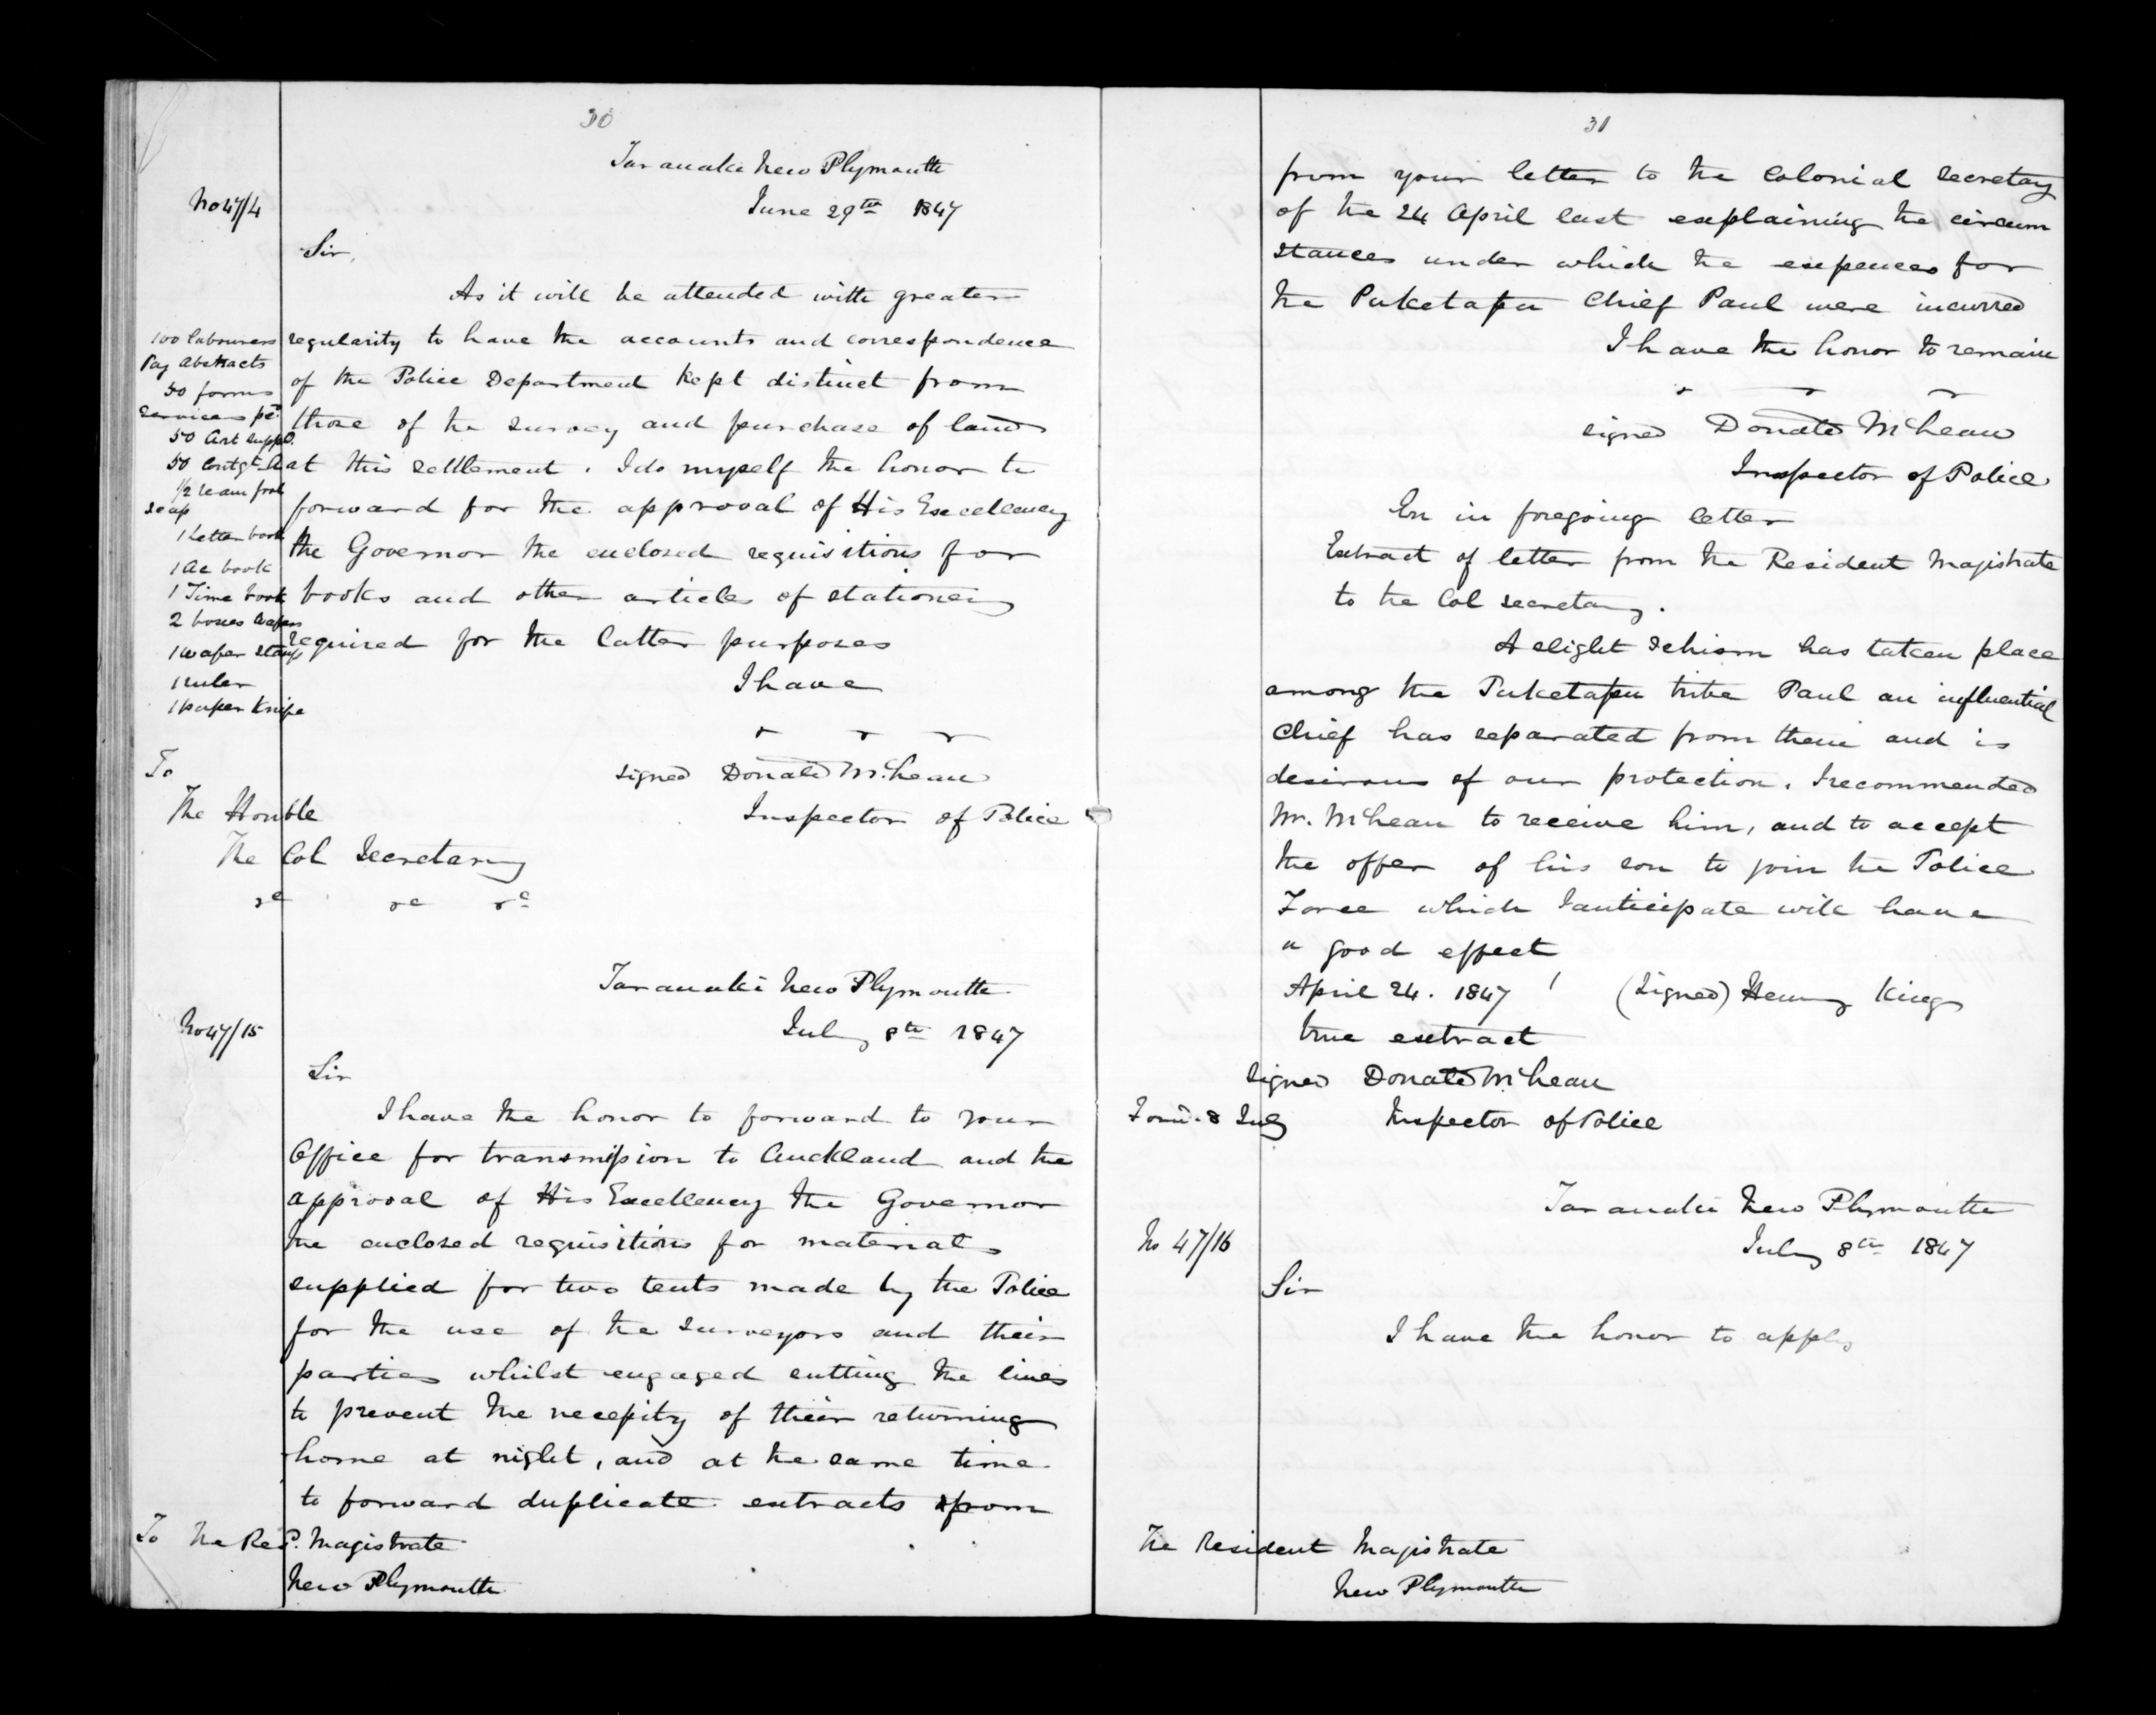 30
Taranaki New Plymouth
No 47/4
June 29th 1847
Sir,
As it will be attended with greater
regularity to have the accounts and correspondence
of the Police Department kept distinct from
those of the survey and purchase of land
at this settlement. I do myself the honor to
forward for the approval of His Excellency
the Governor the enclosed requisitions for
books and other articles of stationery
required for the latter purposes
100 labourers
Pay abstracts
50 forms
services
50 Art suppd.
50 Contgt
1/2 ream
1 Letter book
1 Ac book
1 Time book
2 boxes wafers
1 wafer stamp
1 ruler
1 paper Knife
I have
signed Donald McLean
Inspector of Police
To
The Honble
The Col Secretary
&c &c &c
Taranaki New Plymouth
No 47/15
July 8th 1847
Sir
I have the honor to forward to your
Office for transmission to Auckland and the
approval of His Excellency the Governor
the enclosed requisitions for materials
supplied for two tents made by the Police
for the use of the surveyors and their
parties whilst engaged cutting the lines
to prevent the necessity of their returning
home at night, and at the same time
to forward duplicate extracts from
To The Res. Magistrate
New Plymouth
31
from your letter to the Colonial Secretary
of the 24 April last explaining the circum
stances under which the expences for
the Puketapu Chief Paul were incurred
I have the honor to remain
signed Donald McLean
Inspector of Police
En in foregoing letter
Extract of letter from the Resident Magistrate
to the Col Secretary.
A slight schism has taken place
among the Puketapu tribe Paul an influential
Chief has separated from them and is
desirous of our protection. I recommended
Mr. McLean to receive him, and to accept
the offer of his son to join the Police
Force which I anticipate will have
a good effect
April 24. 1847 (Signed) Henry King
true extract
signed Donald McLean
Forwd. 8 July Inspector of Police
Taranaki New Plymouth
No 47/16
July 8th 1847
Sir
I have the honor to apply
The Resident Magistrate
New Plymouth